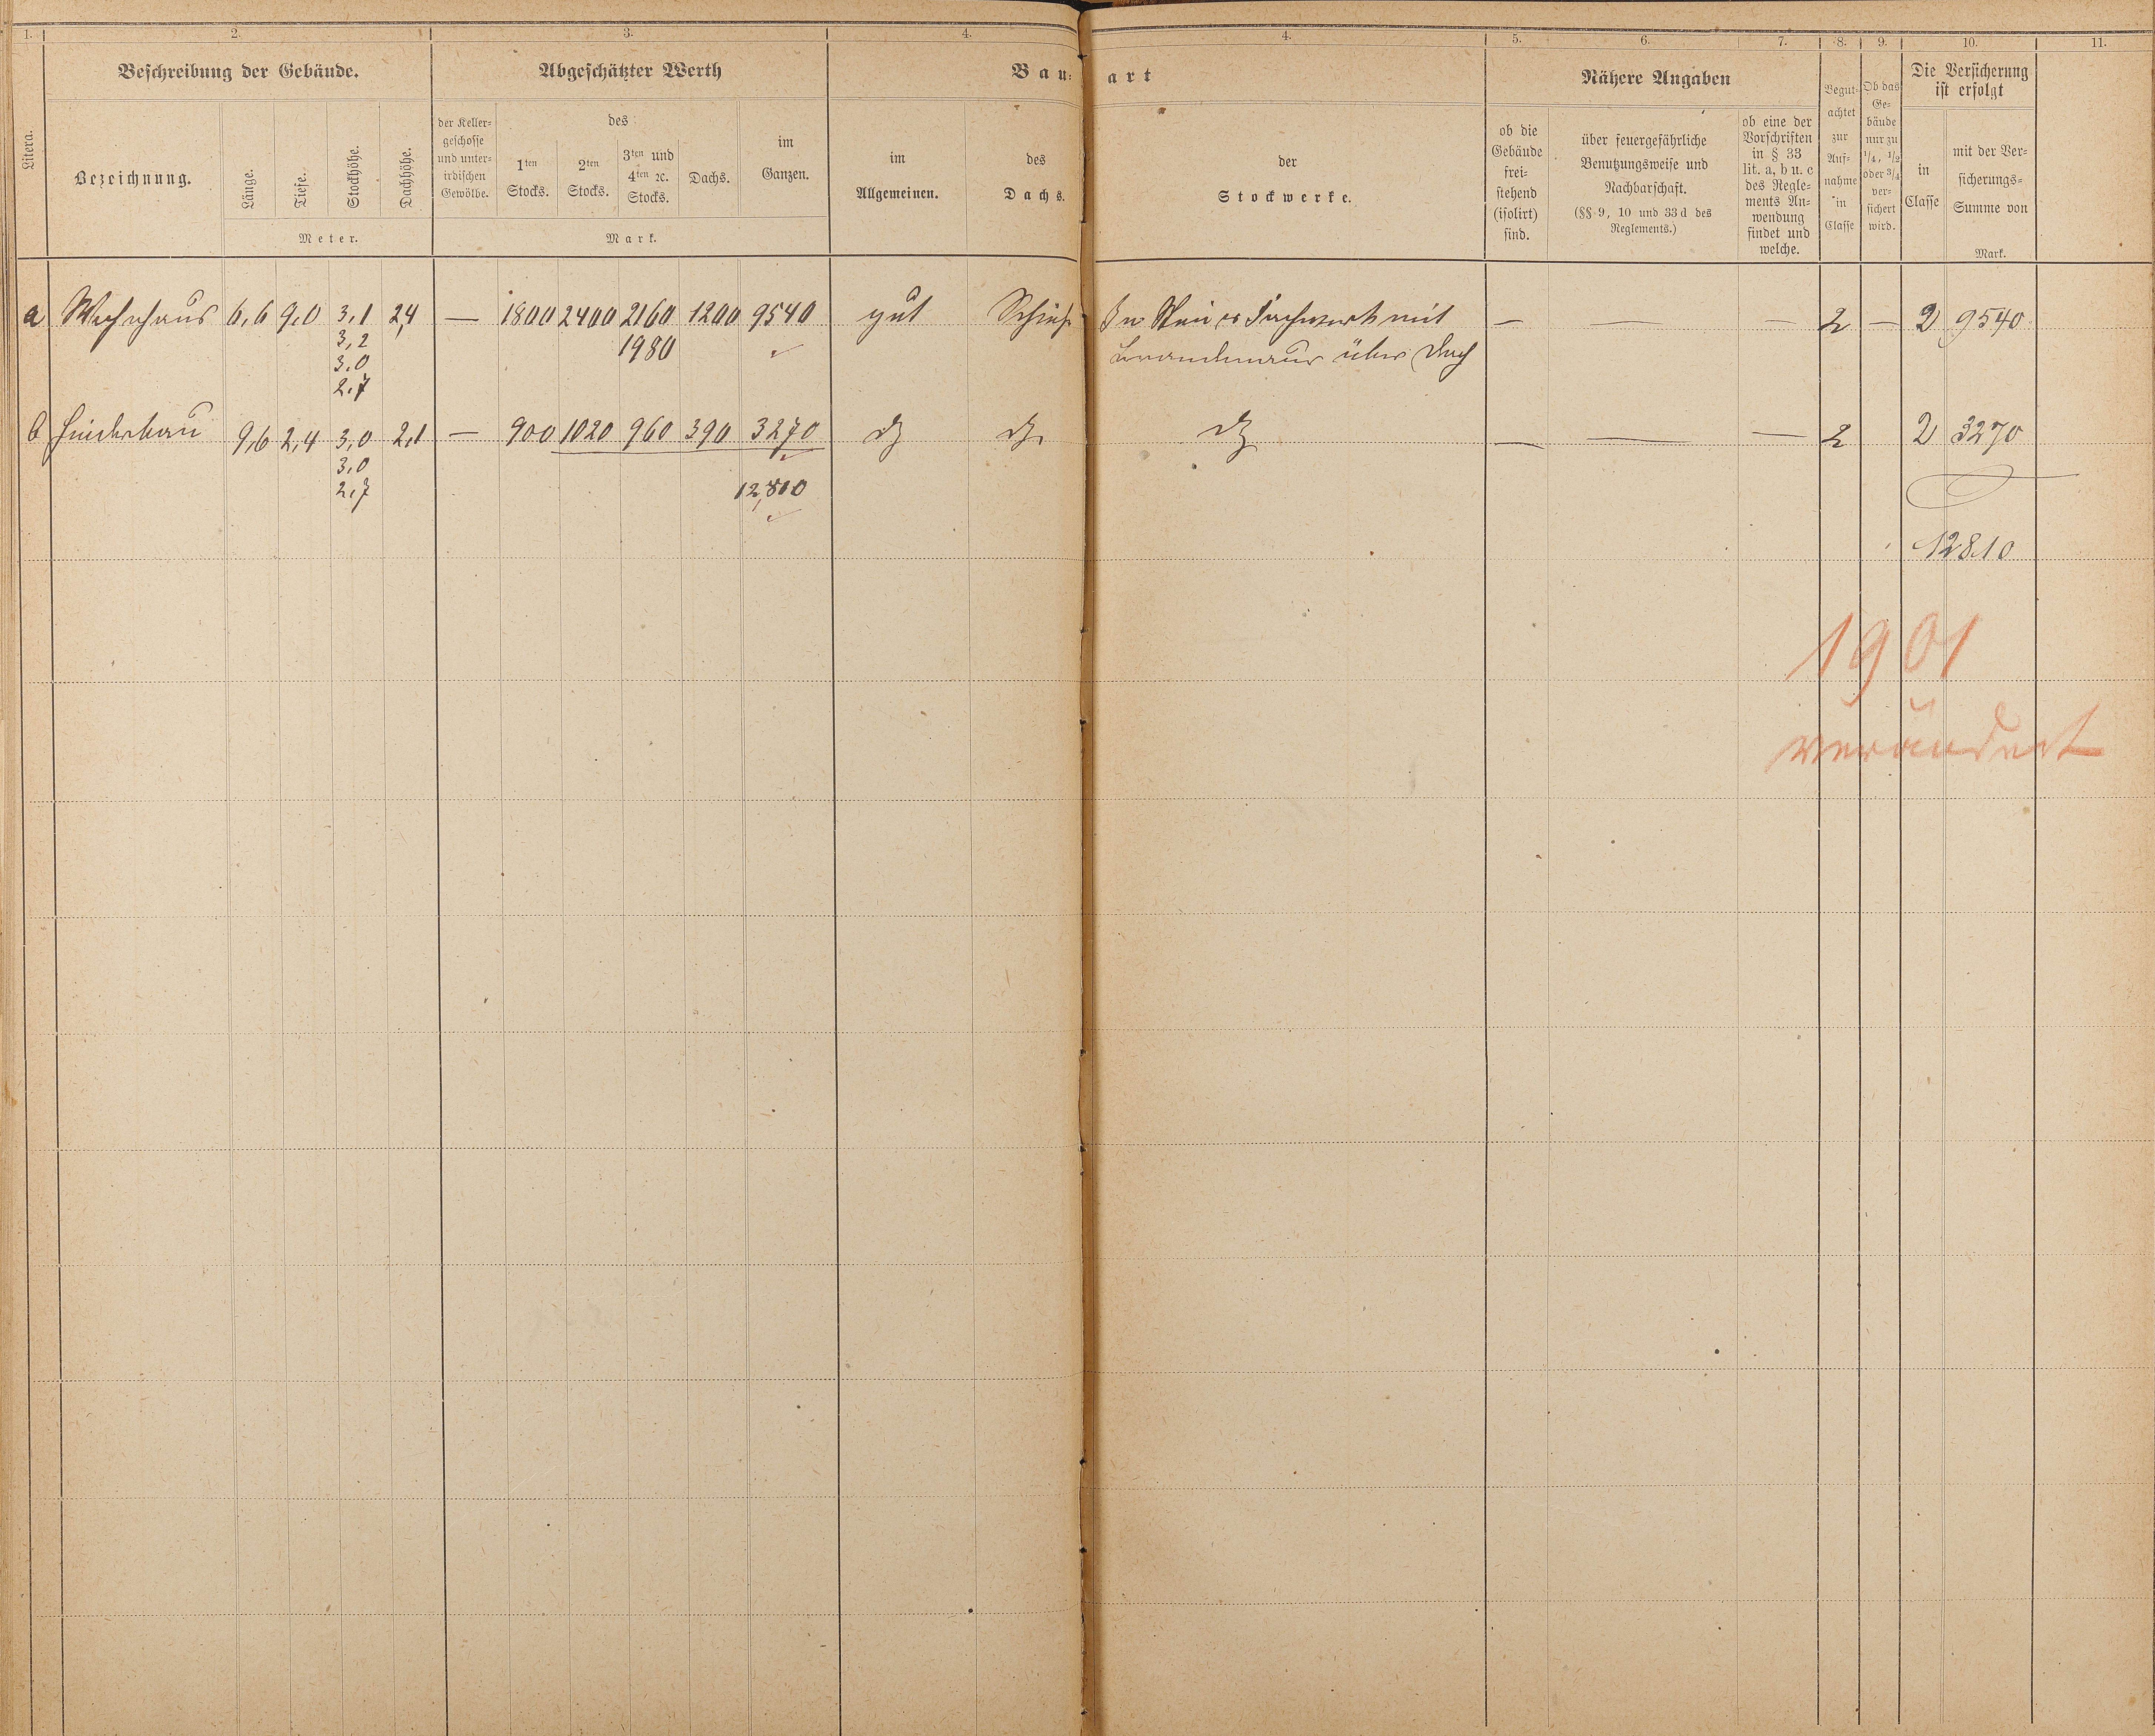 1. 2. 3. 4. 4. 5. 6. 7. 8. 9. 10. 11.
Litera.
Beschreibung der Gebäude.
Bezeichnung.
Länge.
Tiefe.
Stockhöhe.
Dachhöhe.
Meter.
Abgeschätzter Werth
der Keller-
geschosse
und unter-
irdischen
Gewölbe.
des
1ten
Stocks.
2ten
Stocks.
3ten und
4ten ꝛc.
Stocks.
Dachs.
im
Ganzen.
Mark.
Bau-
art
im
Allgemeinen.
des
Dachs.
der
Stockwerke.
Nähere Angaben
ob die
Gebäude
frei-
stehend
(isolirt)
sind.
über feuergefährliche
Benutzungsweise und
Nachbarschaft.
(§§ 9, 10 und 33 d des
Reglements.)
ob eine der
Vorschriften
in § 33
lit. a, b u. c
des Regle-
ments An-
wendung
findet und
welche.
Begut-
achtet
zur
Auf-
nahme
in
Classe
Ob das
Ge-
bäude
nur zu
1/4, 1/2
oder 3/4
ver-
sichert
wird.
Die Versicherung
ist erfolgt
in
Classe
mit der Ver-
sicherungs-
Summe von
Mark.
a Wohnhaus 6,6 9,0 3,1 2,4 — 1800 2400 2160 1200 9540 gut Schief. Fachwerk mit — — — 2 — 2 9540
3,2 1980 Brandmaur über Dach
3,0
2,7
b Hinterbau 9,6 2,4 3,0 2,1 — 900 1020 960 390 3270 do do do — — — 2 2 3270
3,0
2,7 12,810
12810
1901
verändert